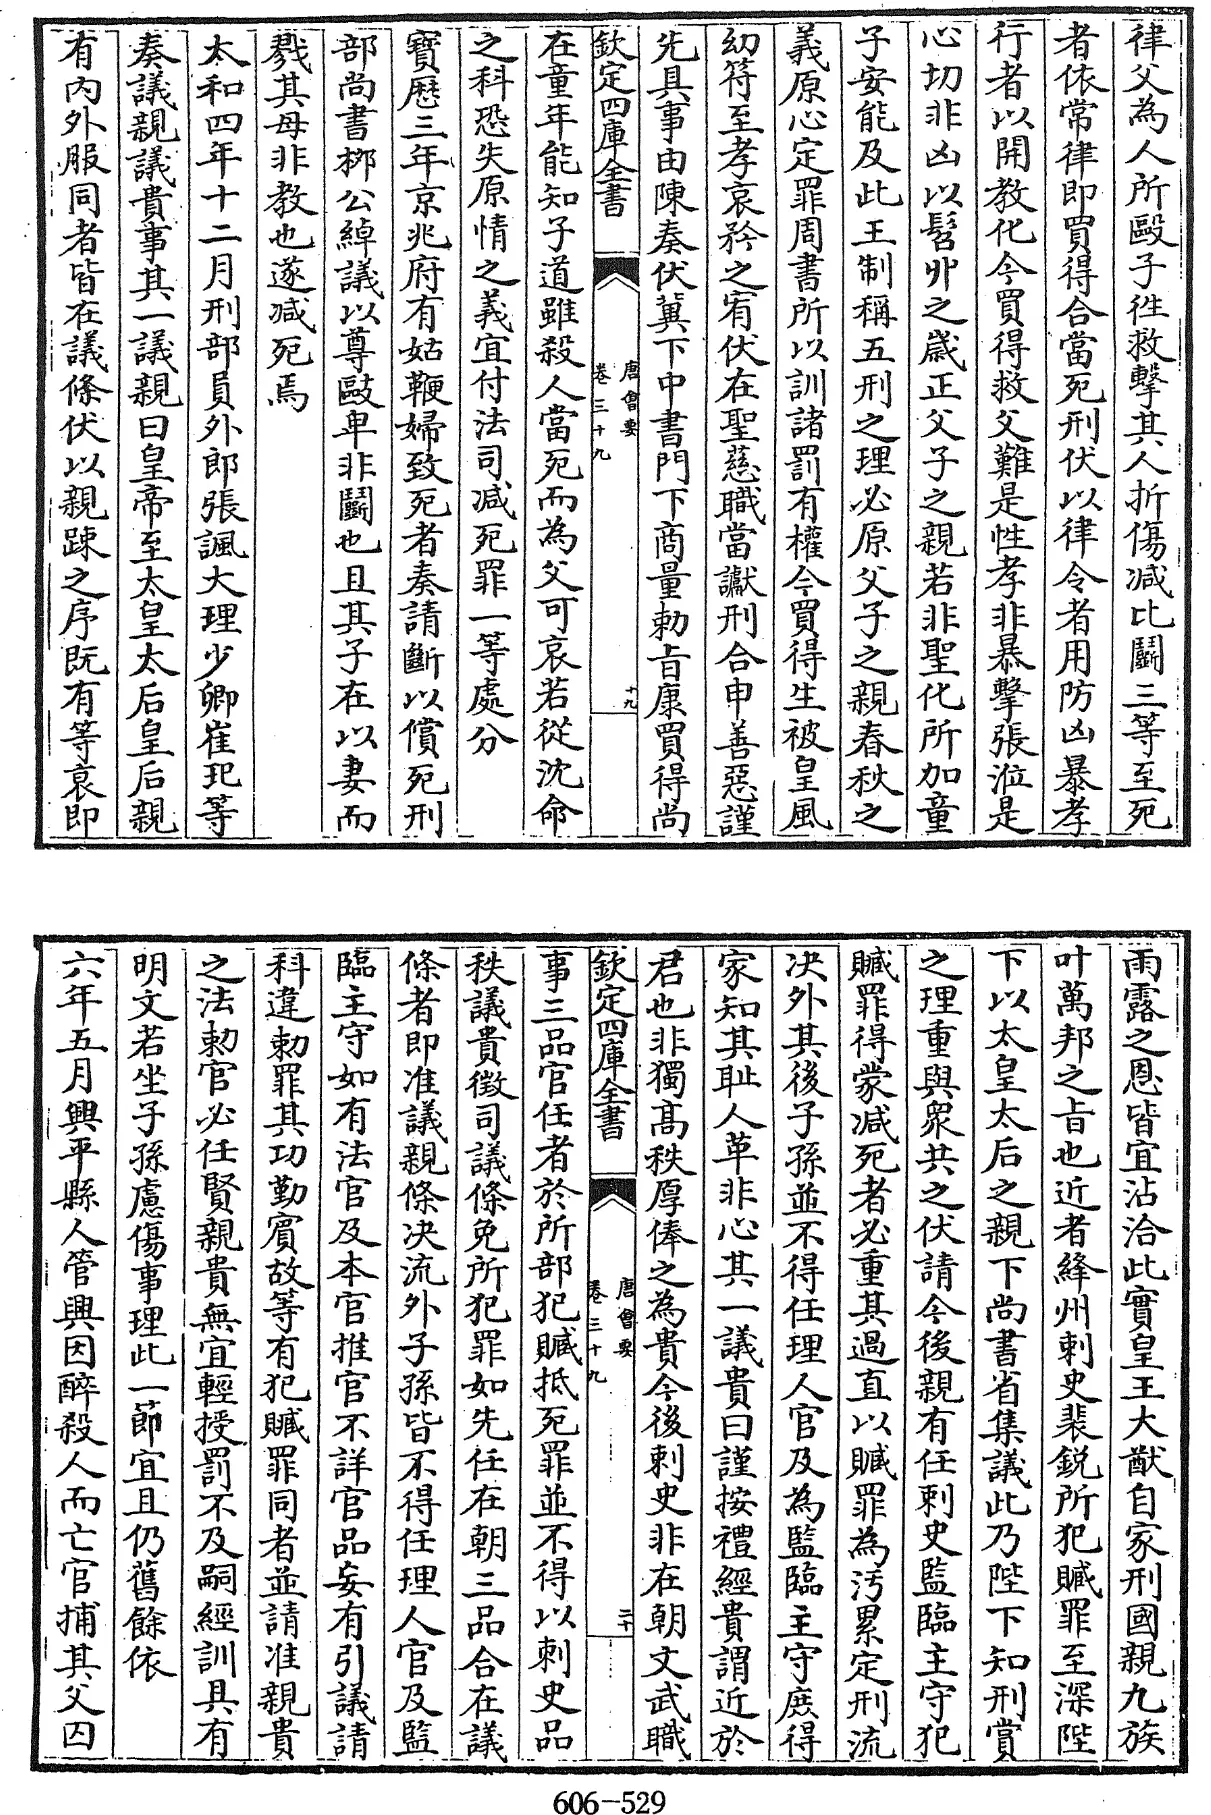 律父為人所毆子徃救擊其人折傷减比鬬三等至死
者依常律即買得合當死刑伏以律令者用防凶暴孝
行者以開教化今買得救父難是性孝非暴擊張涖是
心切非凶以髫丱之嵗正父子之親若非聖化所加童
子安能及此王制稱五刑之理必原父子之親春秋之
義原心定罪周書所以訓諸罰有權今買得生被皇風
幼符至孝哀矜之宥伏在聖慈職當讞刑合申善惡謹
先具事由陳奏伏冀下中書門下商量勅㫖康買得尚
欽定四庫全書
唐會要
卷三十九
十九
在童年能知子道雖殺人當死而為父可哀若從沈命
之科恐失原情之義宜付法司减死罪一等處分
寳厯三年京兆府有姑鞭婦致死者奏請斷以償死刑
部尚書栁公綽議以尊毆卑非鬬也且其子在以妻而
戮其母非教也遂减死焉
太和四年十二月刑部員外郎張諷大理少卿崔玘等
奏議親議貴事其一議親曰皇帝至太皇太后皇后親
有内外服同者皆在議條伏以親踈之序既有等衰即
雨露之恩皆宜沾洽此實皇王大猷自家刑國親九族
叶萬邦之㫖也近者絳州刺史裴鋭所犯贓罪至深陛
下以太皇太后之親下尚書省集議此乃陛下知刑賞
之理重與衆共之伏請今後親有任刺史監臨主守犯
贓罪得蒙减死者必重其過直以贓罪為汚累定刑流
决外其後子孫並不得任理人官及為監臨主守庶得
家知其耻人革非心其一議貴曰謹按禮經貴謂近於
君也非獨髙秩厚俸之為貴今後刺史非在朝文武職
欽定四庫全書
唐會要
卷三十九
二十
事三品官任者於所部犯贓抵死罪並不得以刺史品
秩議貴徴司議條免所犯罪如先任在朝三品合在議
條者即准議親條决流外子孫皆不得任理人官及監
臨主守如有法官及本官推官不詳官品妄有引議請
科違勅罪其功勤賔故等有犯贓罪同者並請准親貴
之法勅官必任賢親貴無宜輕授罰不及嗣經訓具有
明文若坐子孫慮傷事理此一節宜且仍舊餘依
六年五月興平縣人管興因醉殺人而亡官捕其父囚
606-529